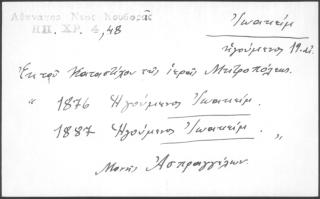 Αθανάσιος Νεος Κουδοράς
ΗΠ. ΧΡ. 4, 48
Ἰωακείμ
ἡγούμενος 19 αἰ.
Ἐκ τοῦ Καταστίχου τῆς ἱερᾶς Μητροπόλεως.
" 1876 Ἡγούμενος Ἰωακείμ.
1887 Ἡγούμενος Ἰωακείμ. "
Μονῆς Ἀσπραγγέλων.